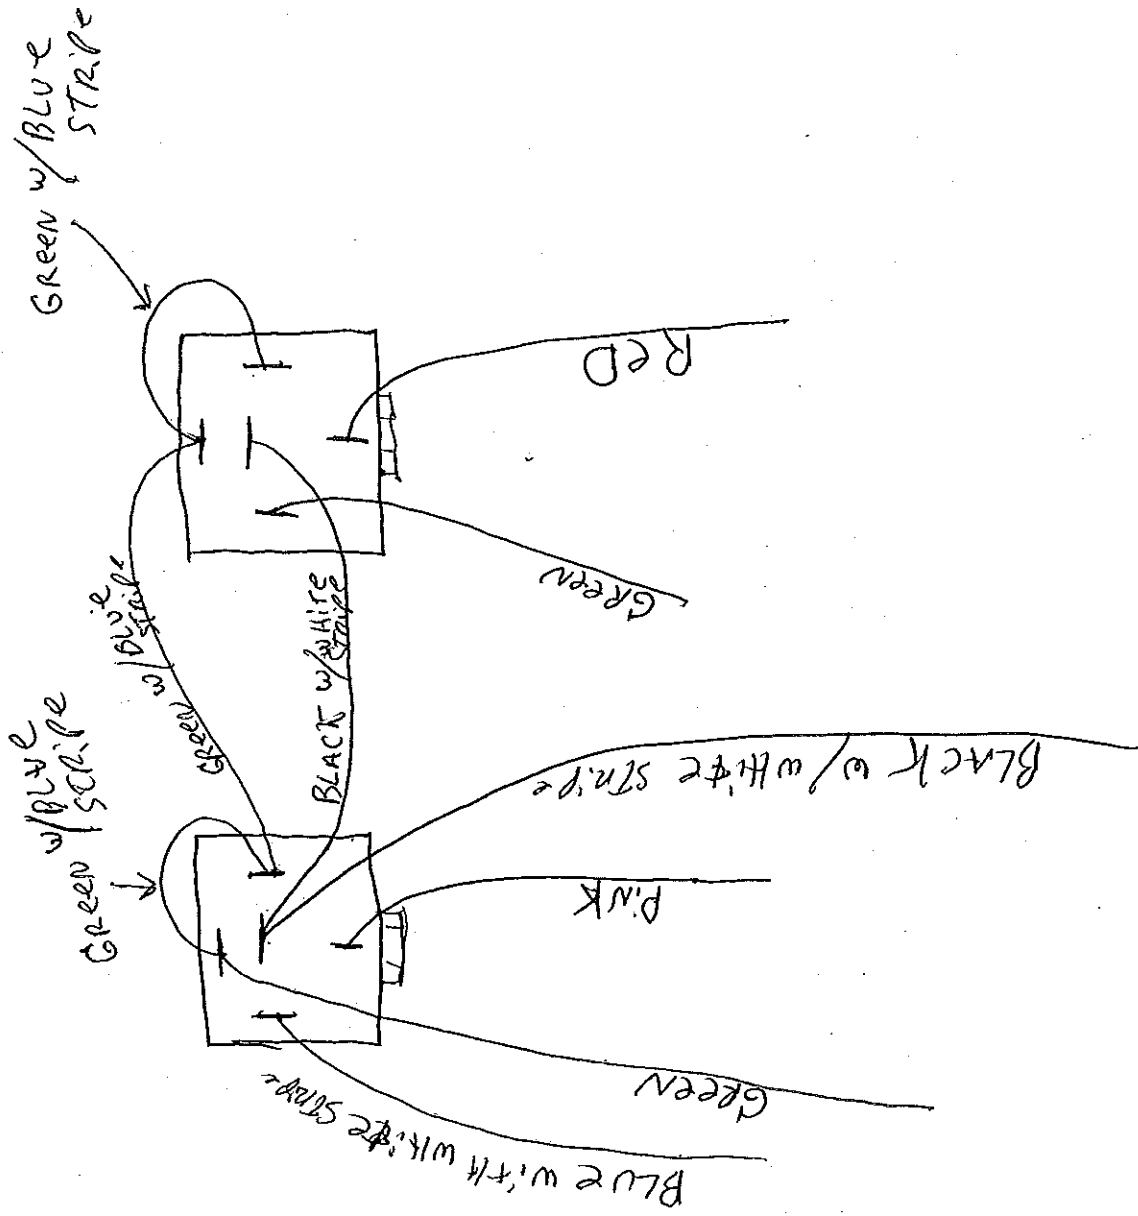 GREEN W/BLUE
STRIPE
RED
GREEN
GREEN W/BLUE
STRIPE
BLACK W/WHITE
STRIPE
GREEN
W/BLUE
STRIPE
BLACK W/WHITE STRIPE
PINK
GREEN
BLUE WITH WHITE STRIPE